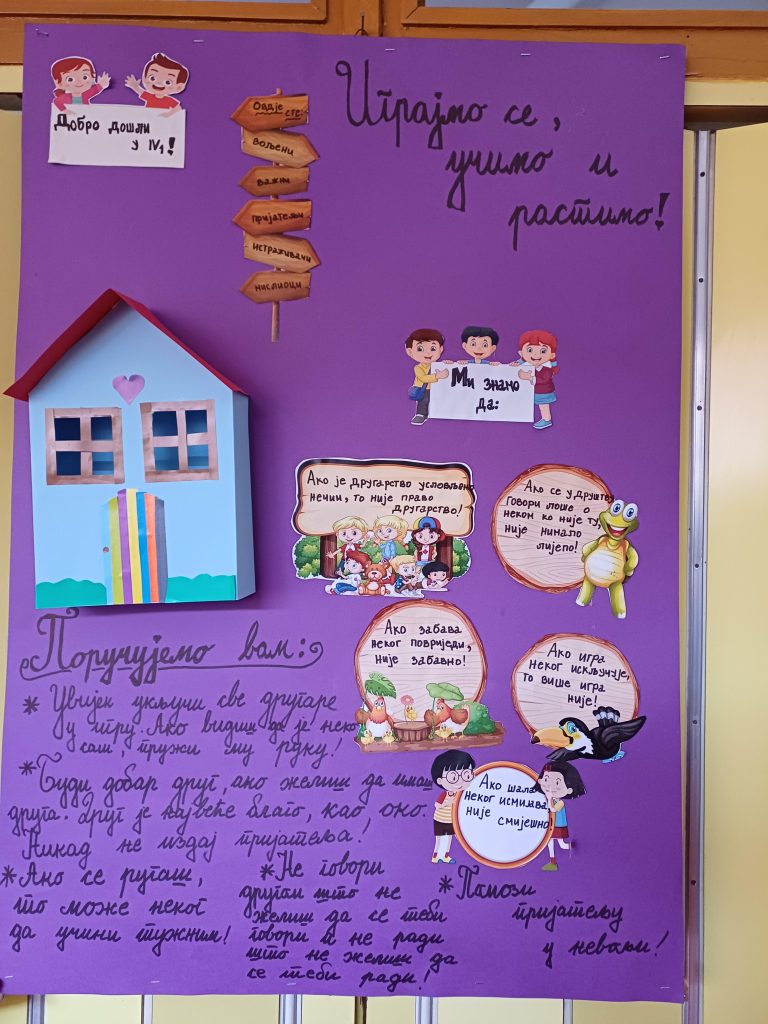 Добро дошли
у IV1!
Овдје
сте:
вољени
важни
пријатељи
истраживачи
мислиоци
Играјмо се,
учимо и
растимо!
Ми знамо
да:
Ако је другарство условљено
нечим, то није право
другарство!
Ако се у друштву
говори лоше о
неком ко није ту,
није нимало
лијепо!
Ако забава
неког повриједи,
није забавно!
Ако игра
неког искључује,
то више игра
није!
Ако шала
неког исмијава,
није смијешно!
Поручујемо вам:
* Увијек укључи све другаре
у игру. Ако видиш да је неко
сам, пружи му руку!
* Буди добар друг, ако желиш да имаш
друга. Друг је највеће благо, као око.
Никад не издај пријатеља!
* Ако се ругаш,
то може неког
да учини тужним!
* Не говори
другом што не
желиш да се теби
говори и не ради
што не желиш да
се теби ради!
* Помози
пријатељу
у невољи!